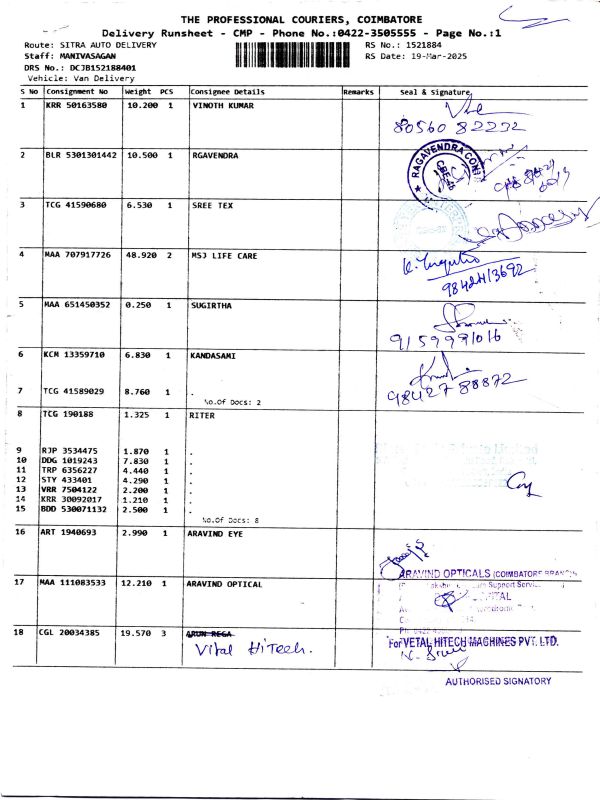 THE PROFESSIONAL COURIERS, COIMBATORE
Delivery Runsheet - CMP - Phone No.:0422-3505555 - Page No.:1
Route: SITRA AUTO DELIVERY
RS No.: 1521884
Staff: MANIVASAGAN
RS Date: 19-Mar-2025
DRS No.: DCJB152188401
Vehicle: Van Delivery
S No Consignment No Weight PCS Consignee Details Remarks Seal & Signature
1 KRR 50163580 10.200 1 VINOTH KUMAR
80560 82232
2 BLR 5301301442 10.500 1 RGAVENDRA
RAGAVENDRA
3 TCG 41590680 6.530 1 SREE TEX
4 MAA 707917726 48.920 2 MSJ LIFE CARE
9842413692
5 MAA 651450352 0.250 1 SUGIRTHA
9159991016
6 KCM 13359710 6.830 1 KANDASAMI
98427 88872
7 TCG 41589029 8.760 1 .
No.Of Docs: 2
8 TCG 190188 1.325 1 RITER
9 RJP 3534475 1.870 1 .
10 DDG 1019243 7.830 1 .
11 TRP 6356227 4.440 1 .
12 STY 433401 4.290 1 .
13 VRR 7504122 2.200 1 .
14 KRR 30092017 1.210 1 .
15 BDD 530071132 2.500 1 .
No.Of Docs: 8
16 ART 1940693 2.990 1 ARAVIND EYE
ARAVIND OPTICALS (COIMBATORE BRANCH)
17 MAA 111083533 12.210 1 ARAVIND OPTICAL
18 CGL 20034385 19.570 3 ARUN REGA
Vital HiTech.
For VETAL HITECH MACHINES PVT. LTD.
AUTHORISED SIGNATORY